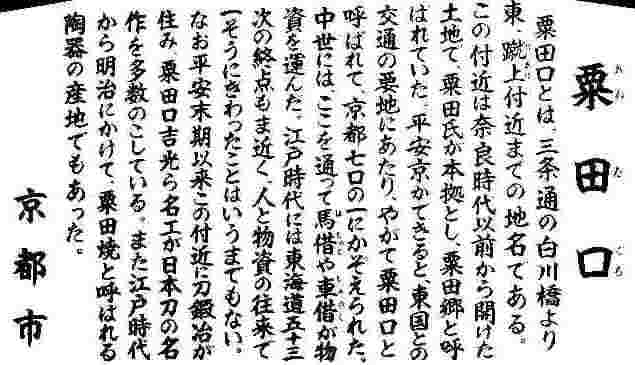 粟田口
粟田口とは、三条通の白川橋より
東、蹴上付近までの地名である。
この付近は奈良時代以前から開けた
土地で、粟田氏が本拠とし、粟田郷と呼
ばれていた。平安京ができると、東国との
交通の要地にあたり、やがて粟田口と
呼ばれて、京都七口の一にかぞえられた。
中世には、ここを通って馬借や車借が物
資を運んだ。江戸時代には東海道五十三
次の終点もま近く、人と物資の往来で
一そうにぎわったことはいうまでもない。
なお平安末期以来この付近に刀鍛冶が
住み、粟田口吉光ら名工が日本刀の名
作を多数のこしている。また江戸時代
から明治にかけて、粟田焼と呼ばれる
陶器の産地でもあった。
京都市